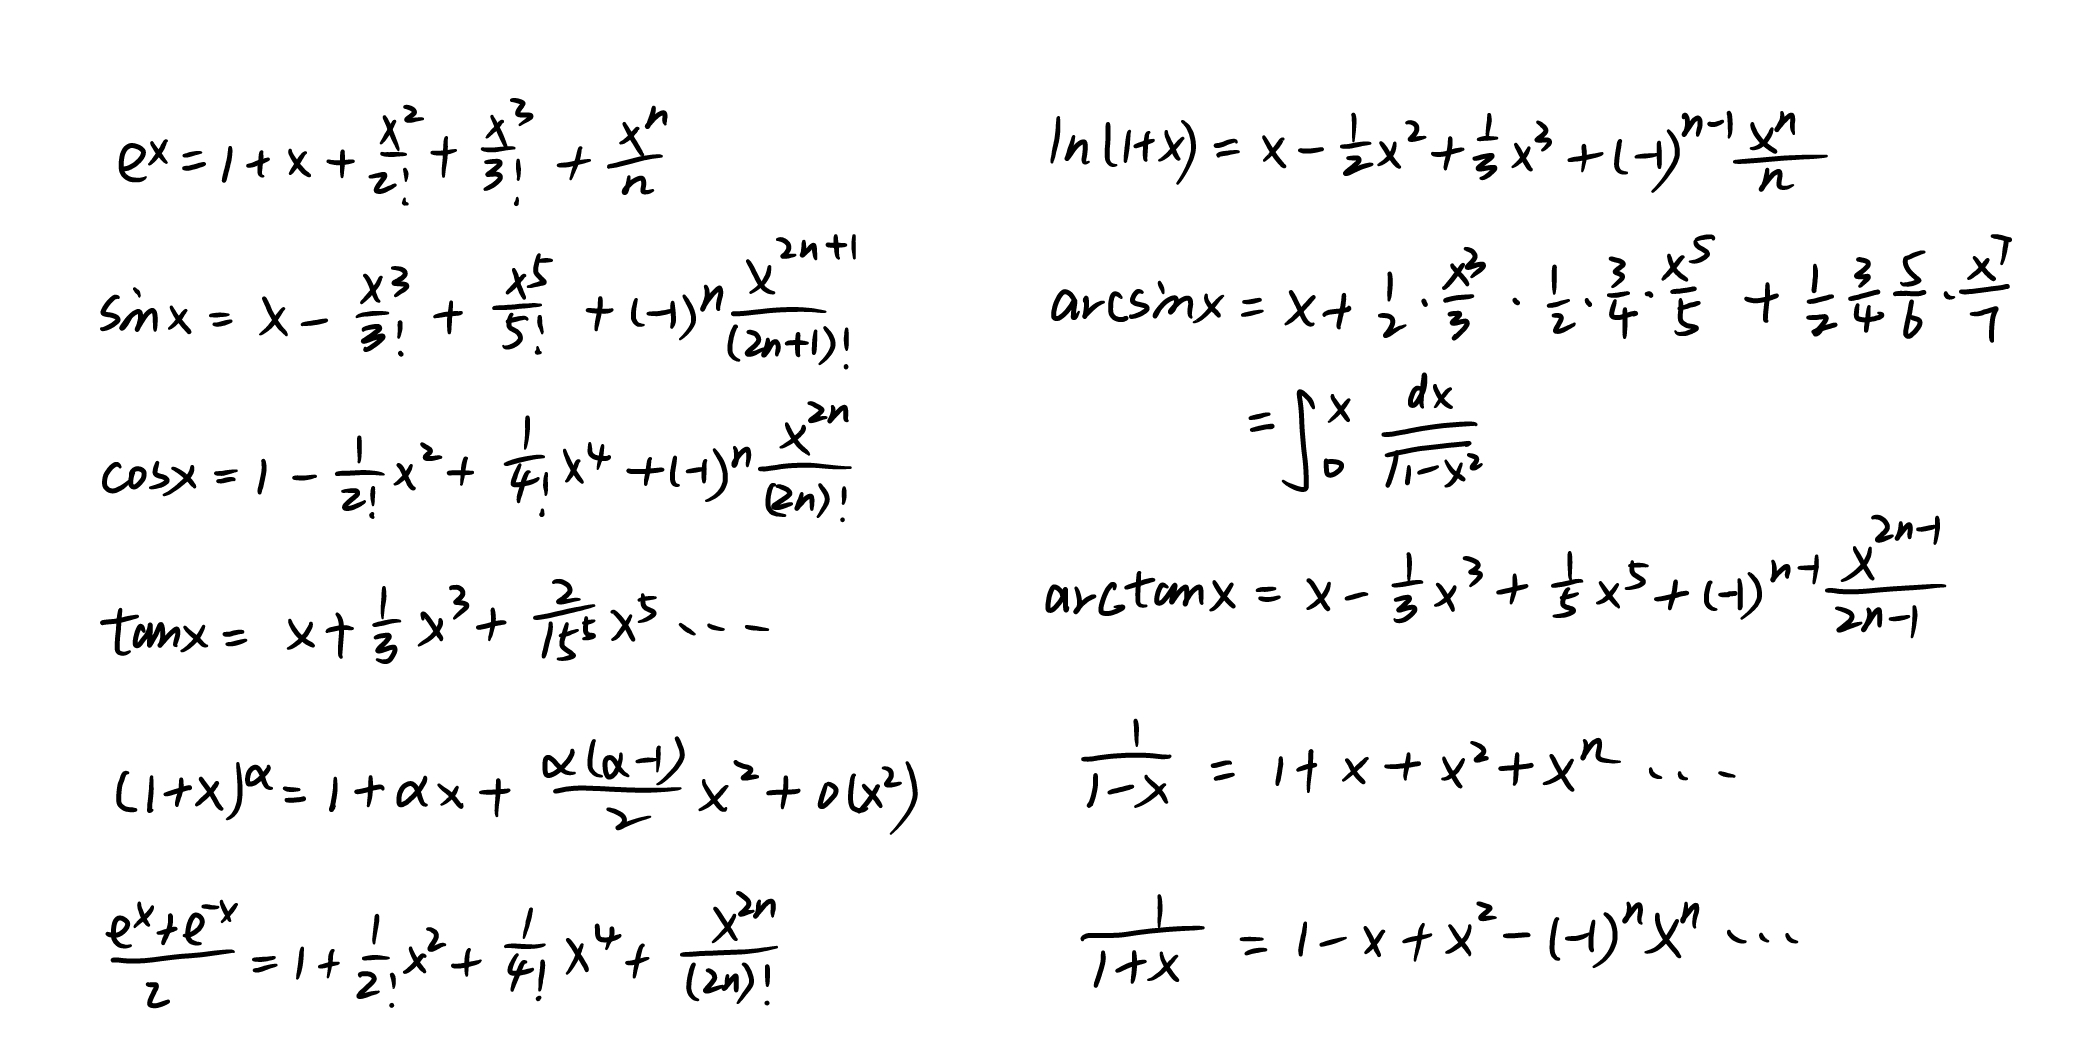 e^x = 1 + x + x^2/2! + x^3/3! + x^n/n
sinx = x - x^3/3! + x^5/5! + (-1)^n x^(2n+1)/(2n+1)!
cosx = 1 - 1/2! x^2 + 1/4! x^4 + (-1)^n x^(2n)/(2n)!
tanx = x + 1/3 x^3 + 2/15 x^5 ...
(1+x)^α = 1 + αx + α(α-1)/2 x^2 + o(x^2)
(e^x + e^-x)/2 = 1 + 1/2! x^2 + 1/4! x^4 + x^(2n)/(2n)!
ln(1+x) = x - 1/2 x^2 + 1/3 x^3 + (-1)^(n-1) x^n/n
arcsinx = x + 1/2 · x^3/3 · 1/2 · 3/4 · x^5/5 + 1/2 3/4 5/6 · x^7/7
= ∫_0^x dx/√(1-x^2)
arctanx = x - 1/3 x^3 + 1/5 x^5 + (-1)^(n-1) x^(2n-1)/(2n-1)
1/(1-x) = 1 + x + x^2 + x^n ...
1/(1+x) = 1 - x + x^2 - (-1)^n x^n ...